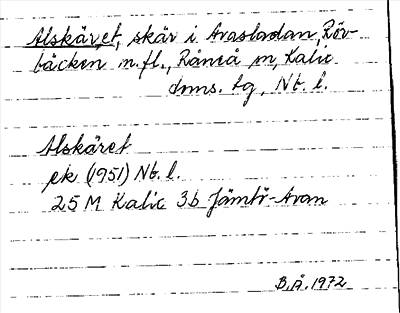 Alskäret, skär i Avasladan, Röv-
bäcken m.fl., Råneå sn, Kalix
dnms. tg, Nb. l.
Alskäret
ek (1951) Nb. l.
25 M Kalix 3b Jämtö-Avan
B.Å. 1972